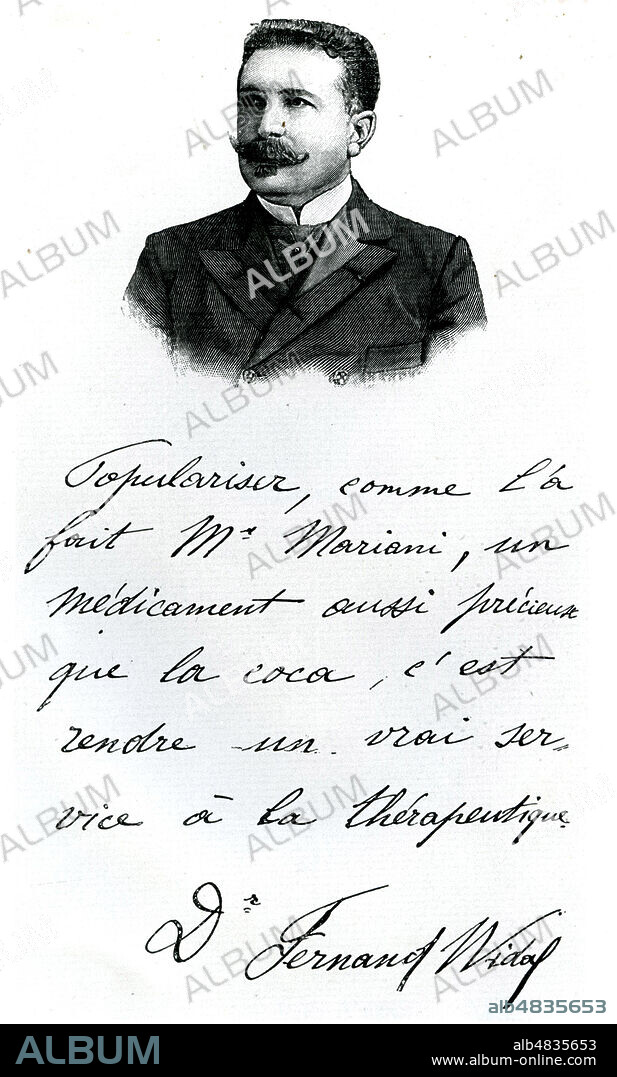 Populariser, comme l'a
fait Mr Mariani, un
médicament aussi précieux
que la coca, c'est
rendre un vrai ser-
vice à la thérapeutique.
Dr Fernand Widal
alb4835653
ALBUM
alb4835653
www.album-online.com